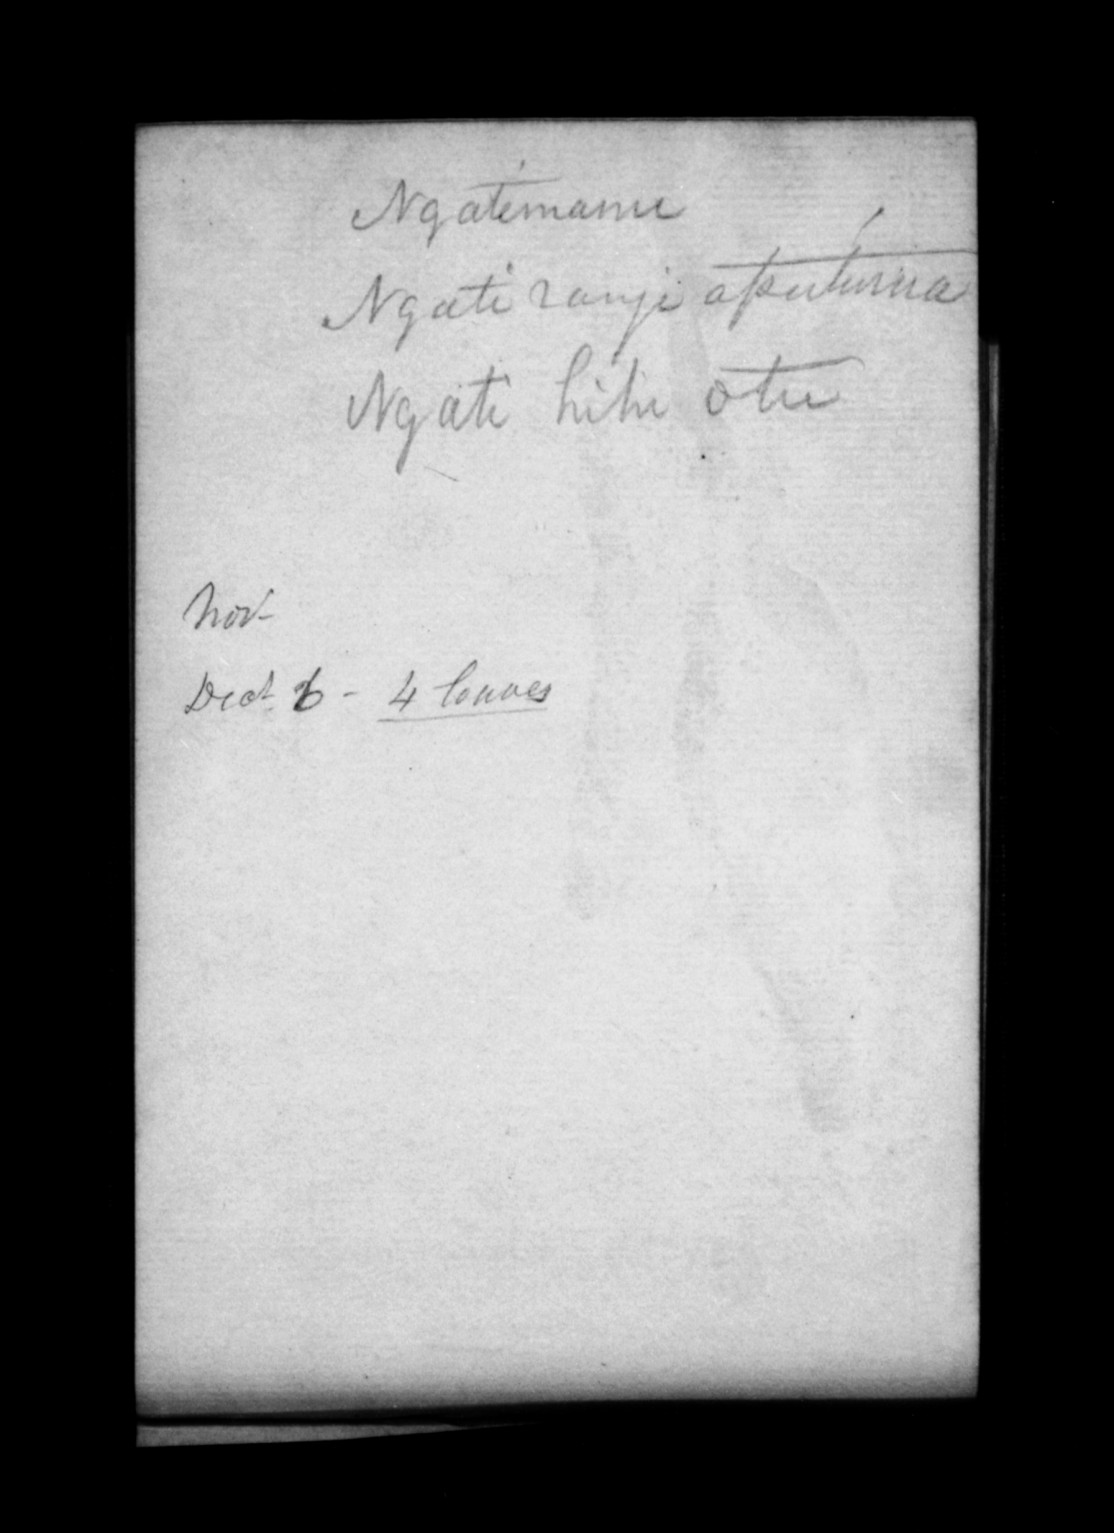 Ngatimanu
Ngati rangi
Ngati hihi otu
Nov
Dect 6 - 4 loaves